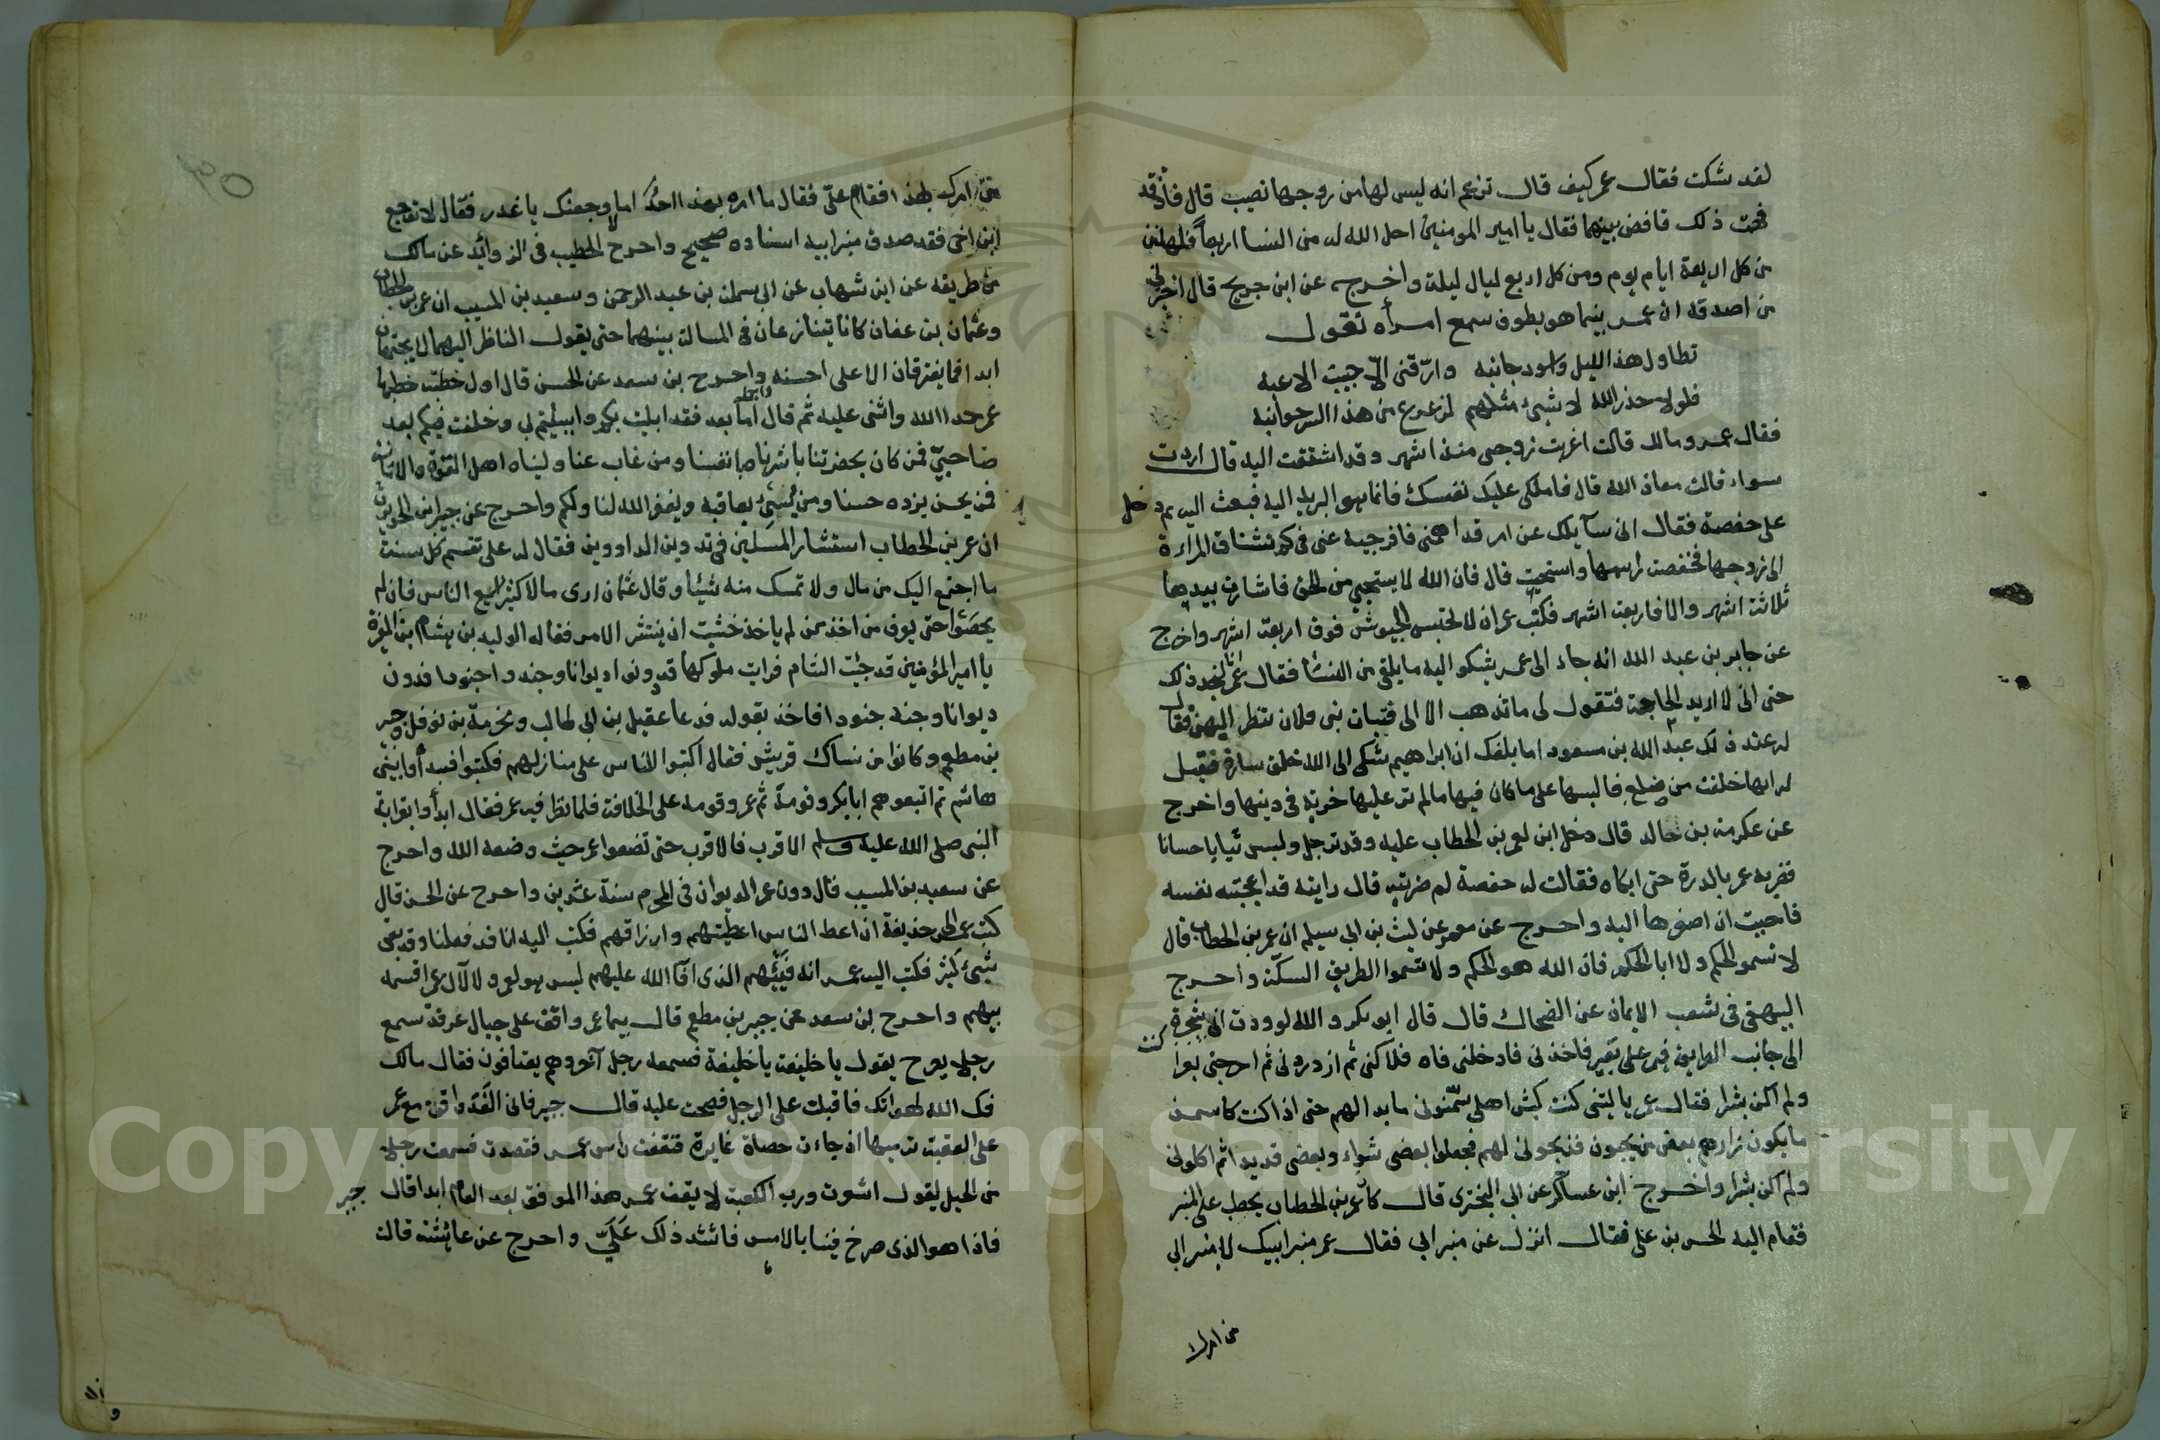 لقد شكت فقال عمر كيف قال تزعم انه ليس لها من زوجها نصيب قال فاذ قد
فهمت ذلك فاقض بينهما فقال يا امير المومنين احل الله له من النسا اربعا فلها
من كل اربعة ايام يوم ومن كل اربع ليال ليلة واخرج عن ابن جريج قال اخبرني
من اصدقه ان عمر بينما هو يطوف سمع امرأه تقول
تطاول هذا الليل واسود جانبه وارّقني الّا حبيب الاعبه
فلولا حذر الله لا شيء مثلهم لزعزع من هذا السرير جوانبه
فقال عمر ومالك قالت اغربت زوجي منذ اشهر وقد اشتقت اليه قال اردت
سواء قالت معاذ الله قال فاملكي عليك نفسك فانما هو البريد اليه فبعث اليه ثم دخل
على حفصة فقال اني سآيلك عن امر قد اهمني فافرجيه عني في كم تشتاق المراءة
الى زوجها فخفضت راسها واستحيت قال فان الله لا يستحيي من الحق فاشارت بيدها
ثلاثة اشهر والا فاربعة اشهر فكتب عمر ان لا تحبس الجيوش فوق اربعة اشهر واخرج
عن جابر بن عبد الله انه جاء الى عمر يشكوا اليه ما يلقى من النسا فقال عمر انا لنجد ذلك
حتى اني لا اريد الحاجة فتقول لي ما تذهب الا الى فتيات بني فلان تنظر اليهن فقال
له عند ذلك عبد الله بن مسعود اما بلغك ان ابراهيم شكى الى الله خلق سارة فقيل
له انها خلقت من ضلع فالبسها على ما كان فيها ما لم تر عليها خربة في دينها واخرج
عن عكرمة بن خالد قال دخل ابن لعمر بن الخطاب عليه وقد ترجل ولبس ثيابا حسانا
فضربه عمر بالدرة حتى ابكاه فقالت له حفصة لم ضربته قال رايته قد اعجبته نفسه
فاحببت ان اصغرها اليه واخرج عن معمر عن ليث بن ابي سيلم ان عمر بن الخطاب قال
لا تسمو الحكم ولا ابا الحكم فان الله هو الحكم ولا تسموا الطريق السكّة واخرج
البيهقي في شعب الايمان عن الضحاك قال قال ابو بكر والله لوددت اني كنت شجرة
الى جانب الطريق فمر علي بعير فاخذني فادخلني فاه فلاكني ثم ازدردني ثم اخرجني بعرا
ولم اكن بشرا فقال عمر يا ليتني كنت كبش اهلي سمّنوني ما بدا لهم حتى اذا كنت كاسمن
ما يكون زارهم بعض من يحبون فذبحوني لهم فجعلوا بعضي شواء وبعضي قديدا ثم اكلوني
ولم اكن بشرا واخرج ابن عساكر عن ابي البختري قال كان عمر بن الخطاب يخطب على المنبر
فقام اليه الحسين بن علي فقال انزل عن منبر ابي فقال عمر منبر ابيك لا منبر ابي
من امرك
من امرك بهذا فقام عليّ فقال ما امره بهذا احدٌ اما لاوجعنك يا غدر فقال لا توجع
ابن اخي فقد صدق منبر ابيه اسناده صحيح واخرج الخطيب في الزوايد عن مالك
من طريقه عن ابن شهاب عن ابي سلمة بن عبد الرحمن وسعيد بن المسيب ان عمر بن الخطاب
وعثمان بن عفان كانا يتنازعان في المسالة بينهما حتى يقول الناظر اليهما لا يجتمعان
ابدا فما يفترقان الا على احسنه واجمله واخرج بن سعد عن الحسن قال اول خطبة خطبها
عمر حمد الله واثنى عليه ثم قال اما بعد فقد ابليت بكم وابتليتم بي وخلفت فيكم بعد
صاحبيّ فمن كان بحضرتنا باشرناه بانفسنا ومن غاب عنا وليناه اهل القوة والامانة
فمن يحسن يزده حسنا ومن يُسئ يعاقبه ويغفر الله لنا ولكم واخرج عن جبير بن الحويرث
ان عمر بن الخطاب استشار المسلمين في تدوين الدواوين فقال له علي تقسم كل سنة
ما اجتمع اليك من مال ولا تمسك منه شيئا وقال عثمان ارى مالا كثيرا يسع الناس فان لم
يحصوا حتى يعرف من اخذ ممن لم ياخذ خشيت ان ينتشر الامر فقال له الوليد بن هشام بن المغيرة
يا امير المؤمنين قد جئت الشام فرايت ملوكها قد دونوا ديوانا وجندوا جنودا فدون
ديوانا وجند جنودا فاخذ بقوله فدعا عقيل بن ابي طالب ومخرمة بن نوفل وجبير
بن مطعم وكانوا من نساك قريش فقال اكتبوا الناس على منازلهم فكتبوا فبدأوا ببني
هاشم ثم اتبعوهم ابا بكر وقومه ثم عمر وقومه على الخلافة فلما نظر فيه عمر فقال ابدأوا بقرابة
النبي صلى الله عليه وسلم الاقرب فالاقرب حتى تضعوا عمر حيث وضعه الله واخرج
عن سعيد بن المسيب قال دون عمر الديوان في المحرم سنة عشرين واخرج عن الحسن قال
كتب عمر الى حذيفة ان اعط الناس اعطيتهم وارزاقهم فكتب اليه انا قد فعلنا وقد بقي
شيئ كثير فكتب اليه عمر انه فيئهم الذي افآ الله عليهم ليس هو لعمر ولا لآل عمر اقسمه
بينهم واخرج بن سعد عن جبير بن مطعم قال بينما عمر واقف على جبال عرفة سمع
رجلا يصرخ يقول يا خليفة يا خليفة فسمعه رجل آخر وهم يعتافون فقال مالك
فك الله لهواتك فاقبلت على الرجل فصحت عليه قال جبير فاني الغد واقف مع عمر
على العقبة يرميها اذ جاءت حصاة غايرة فنقفت راس عمر فقصدت فسمعت رجلا
من الجبل يقول اشعرت ورب الكعبة لا يقف عمر هذا الموقف بعد العام ابدا قال جبير
فاذا هو الذي صرخ فينا بالامس فاشتد ذلك عَلَيّ واخرج عن عائشة قالت